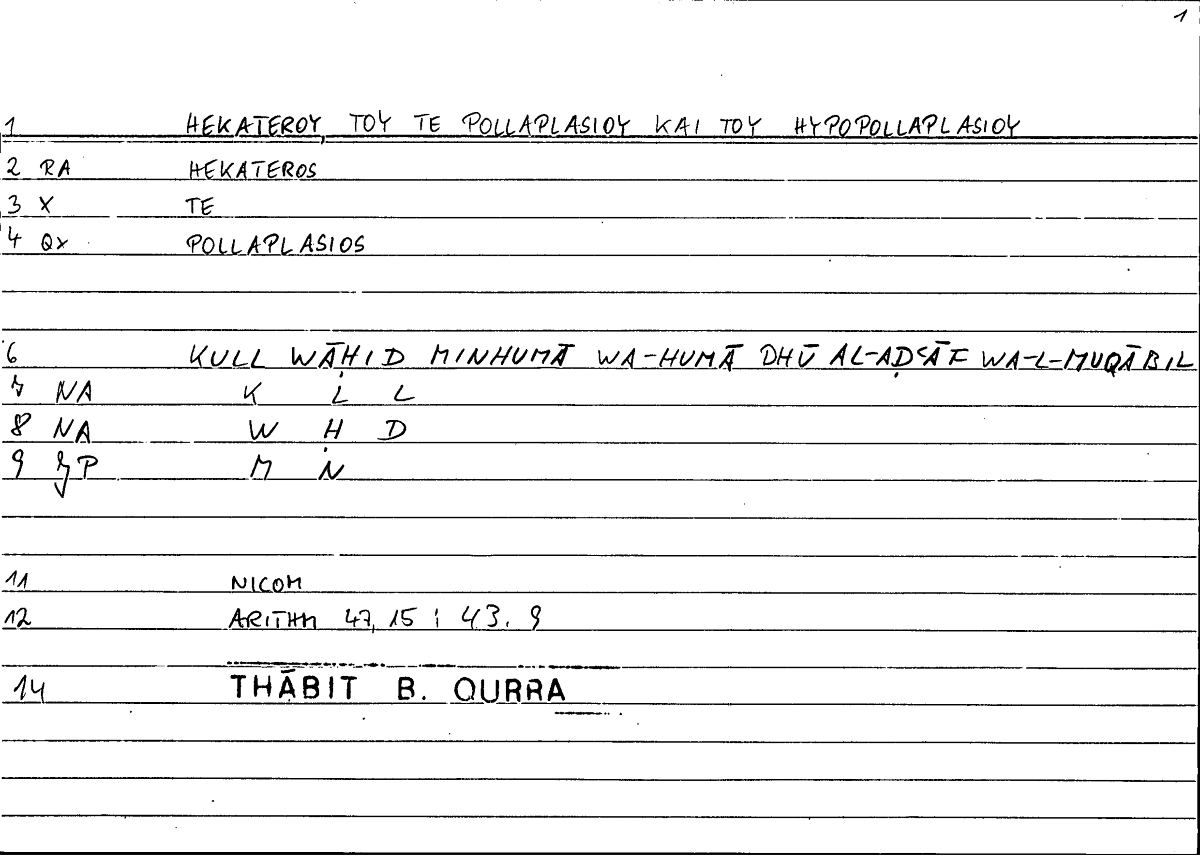 1
1 HEKATEROY, TOY TE POLLAPLASIOY KAI TOY HYPOPOLLAPLASIOY
2 RA HEKATEROS
3 X TE
4 Qx POLLAPLASIOS
6 KULL WĀḤID MINHUMĀ WA-HUMĀ DHŪ AL-AḌʿĀF WA-L-MUQĀBIL
7 NA K L L
8 NA W Ḥ D
9 P M N
11 NICOM
12 ARITHM 47,15 ; 43.9
14 THĀBIT B. QURRA